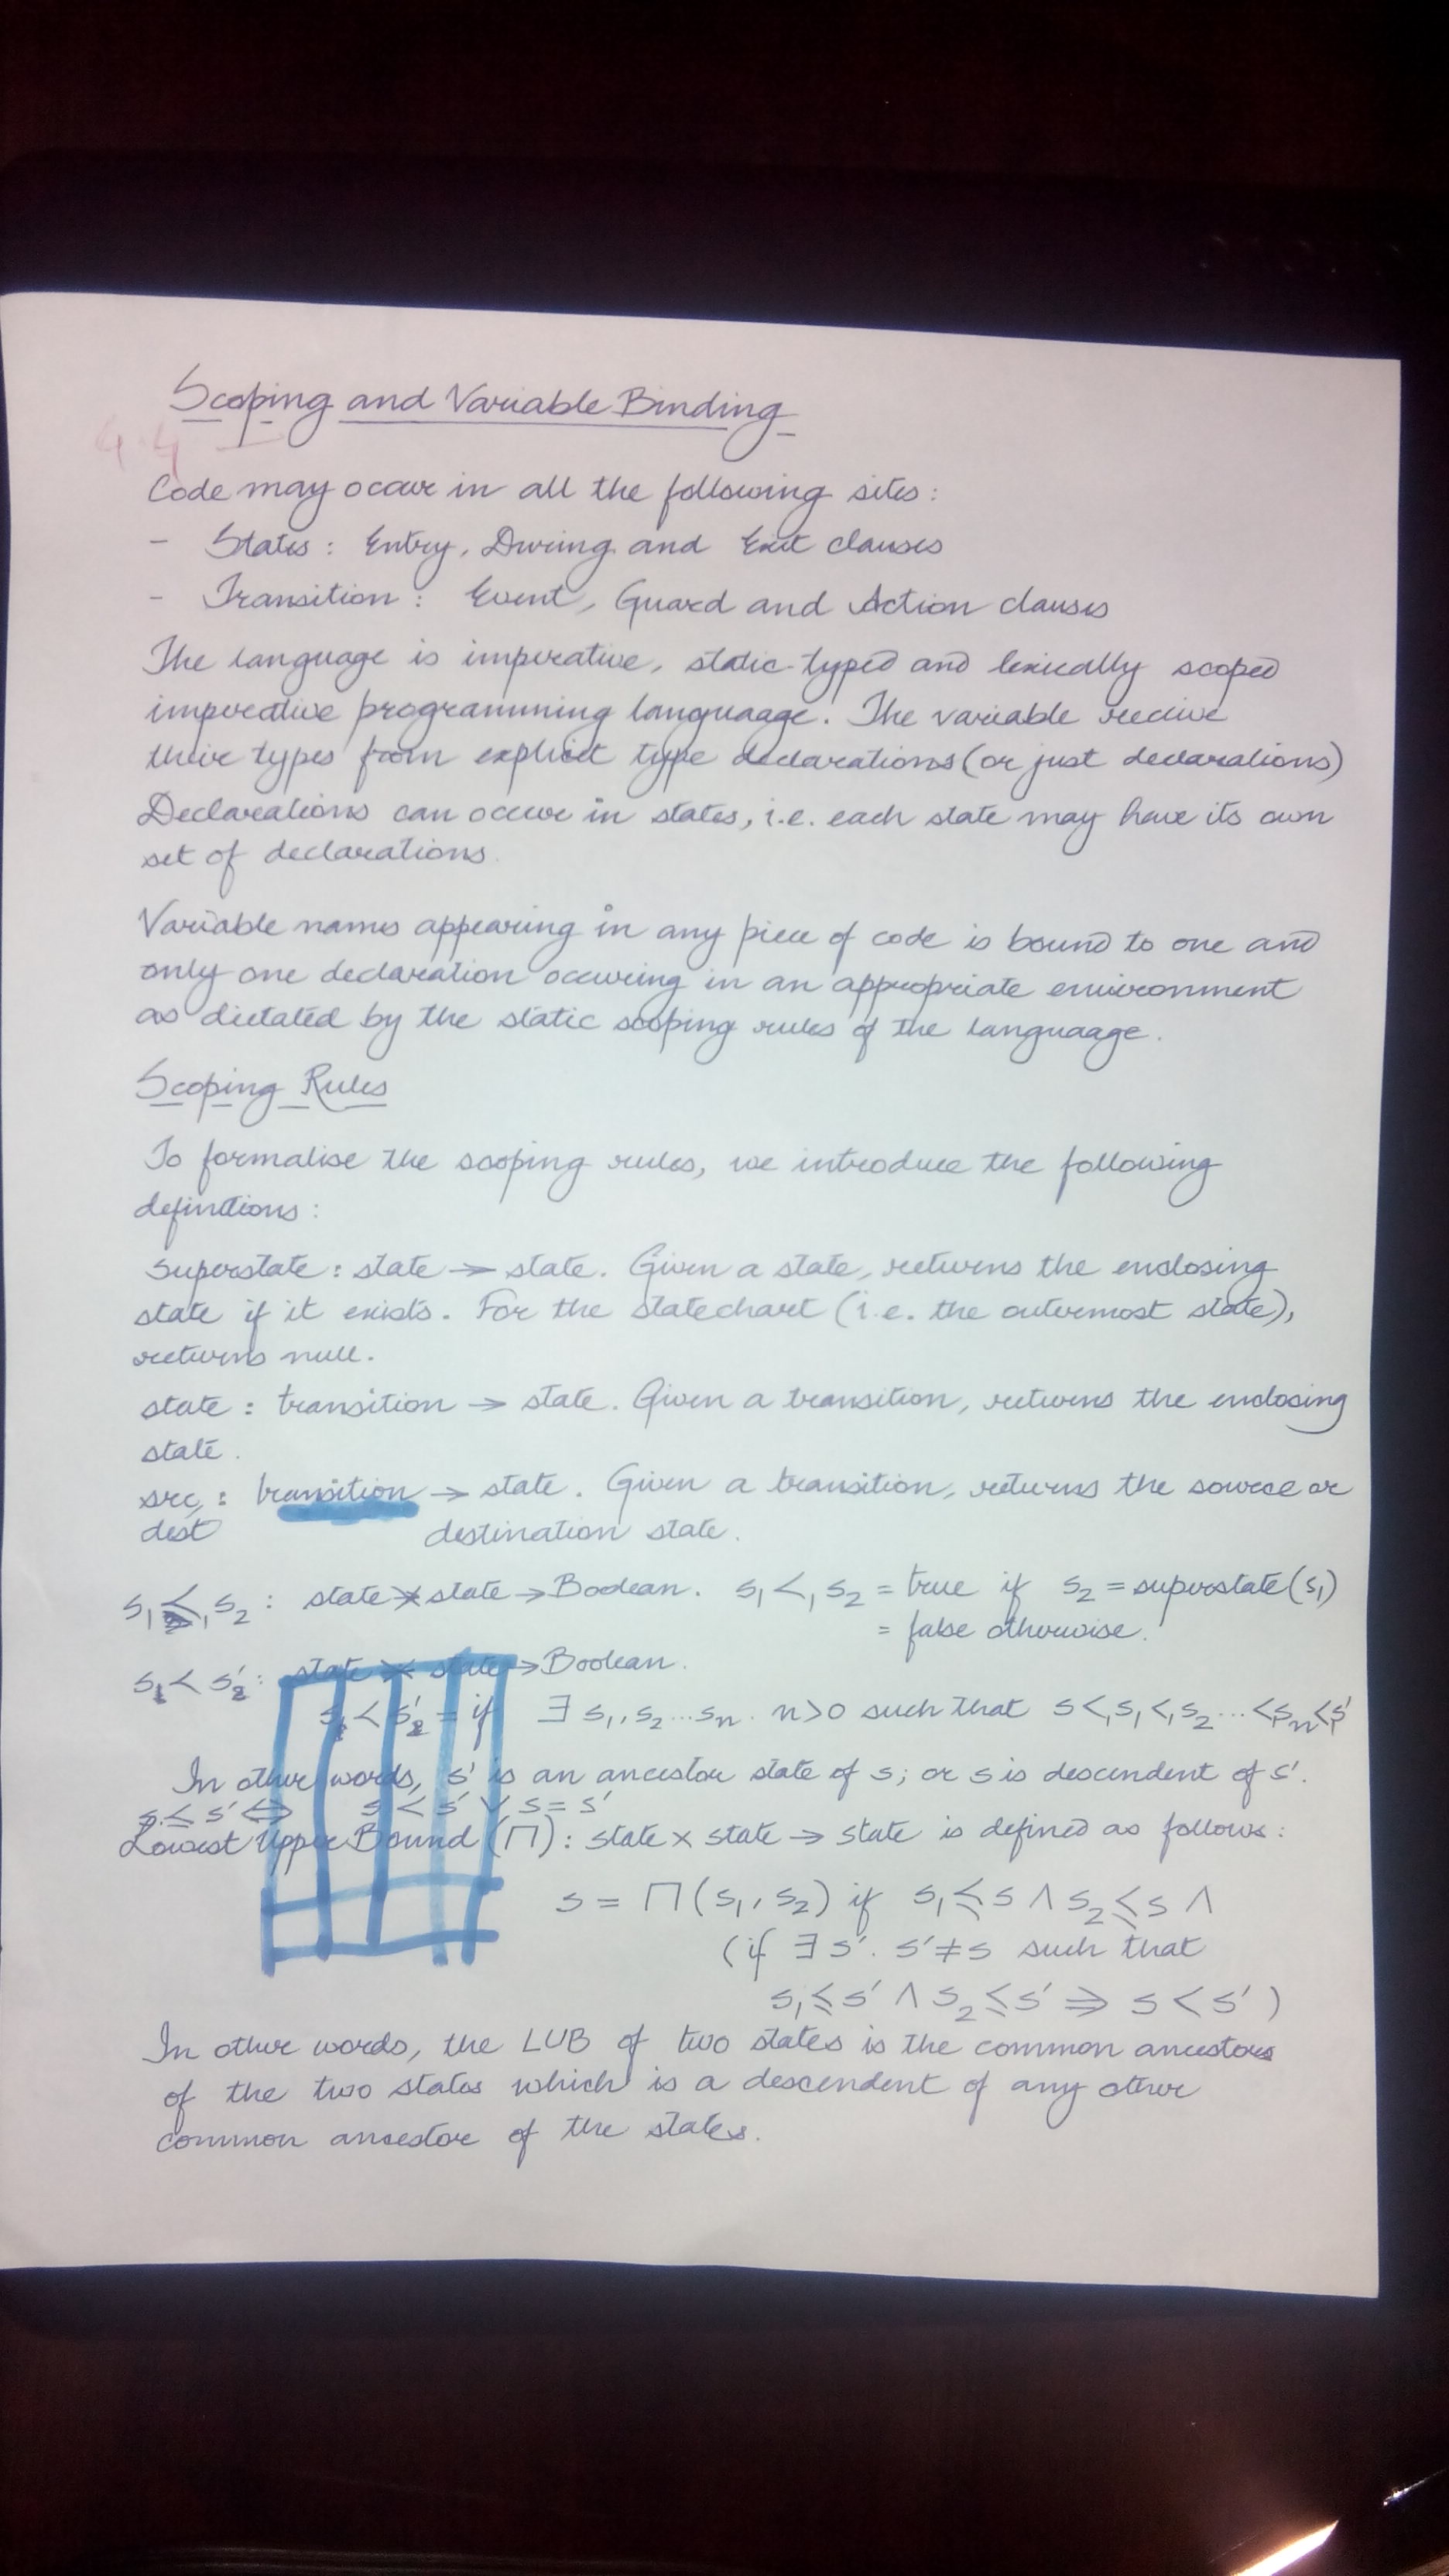 Scoping and Variable Binding
4.4
Code may occur in all the following sites:
- States: Entry, During and Exit clauses
- Transition: Event, Guard and Action clauses
The language is imperative, static-typed and lexically scoped
imperative programming languaage. The variable recieve
their types from explicit type declarations (or just declarations)
Declarations can occur in states, i.e. each state may have its own
set of declarations.
Variable names appearing in any piece of code is bound to one and
only one declaration occuring in an appropriate environment
as dictated by the static scoping rules of the languaage.
Scoping Rules
To formalise the scoping rules, we introduce the following
definitions:
superstate: state → state. Given a state, returns the enclosing
state if it exists. For the statechart (i.e. the outermost state),
returns null.
state: transition → state. Given a transition, returns the enclosing
state.
src, : transition → state. Given a transition, returns the source or
dest destination state.
s₁ <₁ s₂ : state × state → Boolean. s₁ <₁ s₂ = true if s₂ = superstate(s₁)
= false otherwise.
s < s' : state × state → Boolean.
s < s' = if ∃ s₁, s₂ ... sₙ. n>0 such that s <₁ s₁ <₁ s₂ ... <₁ sₙ <₁ s'
In other words, s' is an ancestor state of s; or s is descendent of s'.
s ≤ s' ⇔ s < s' ∨ s = s'
Lowest Upper Bound (⊓): state × state → state is defined as follows:
s = ⊓(s₁, s₂) if s₁ ≤ s ∧ s₂ ≤ s ∧
(if ∃ s'. s' ≠ s such that
s₁ ≤ s' ∧ s₂ ≤ s' ⇒ s < s')
In other words, the LUB of two states is the common ancestors
of the two states which is a descendent of any other
common ancestor of the states.